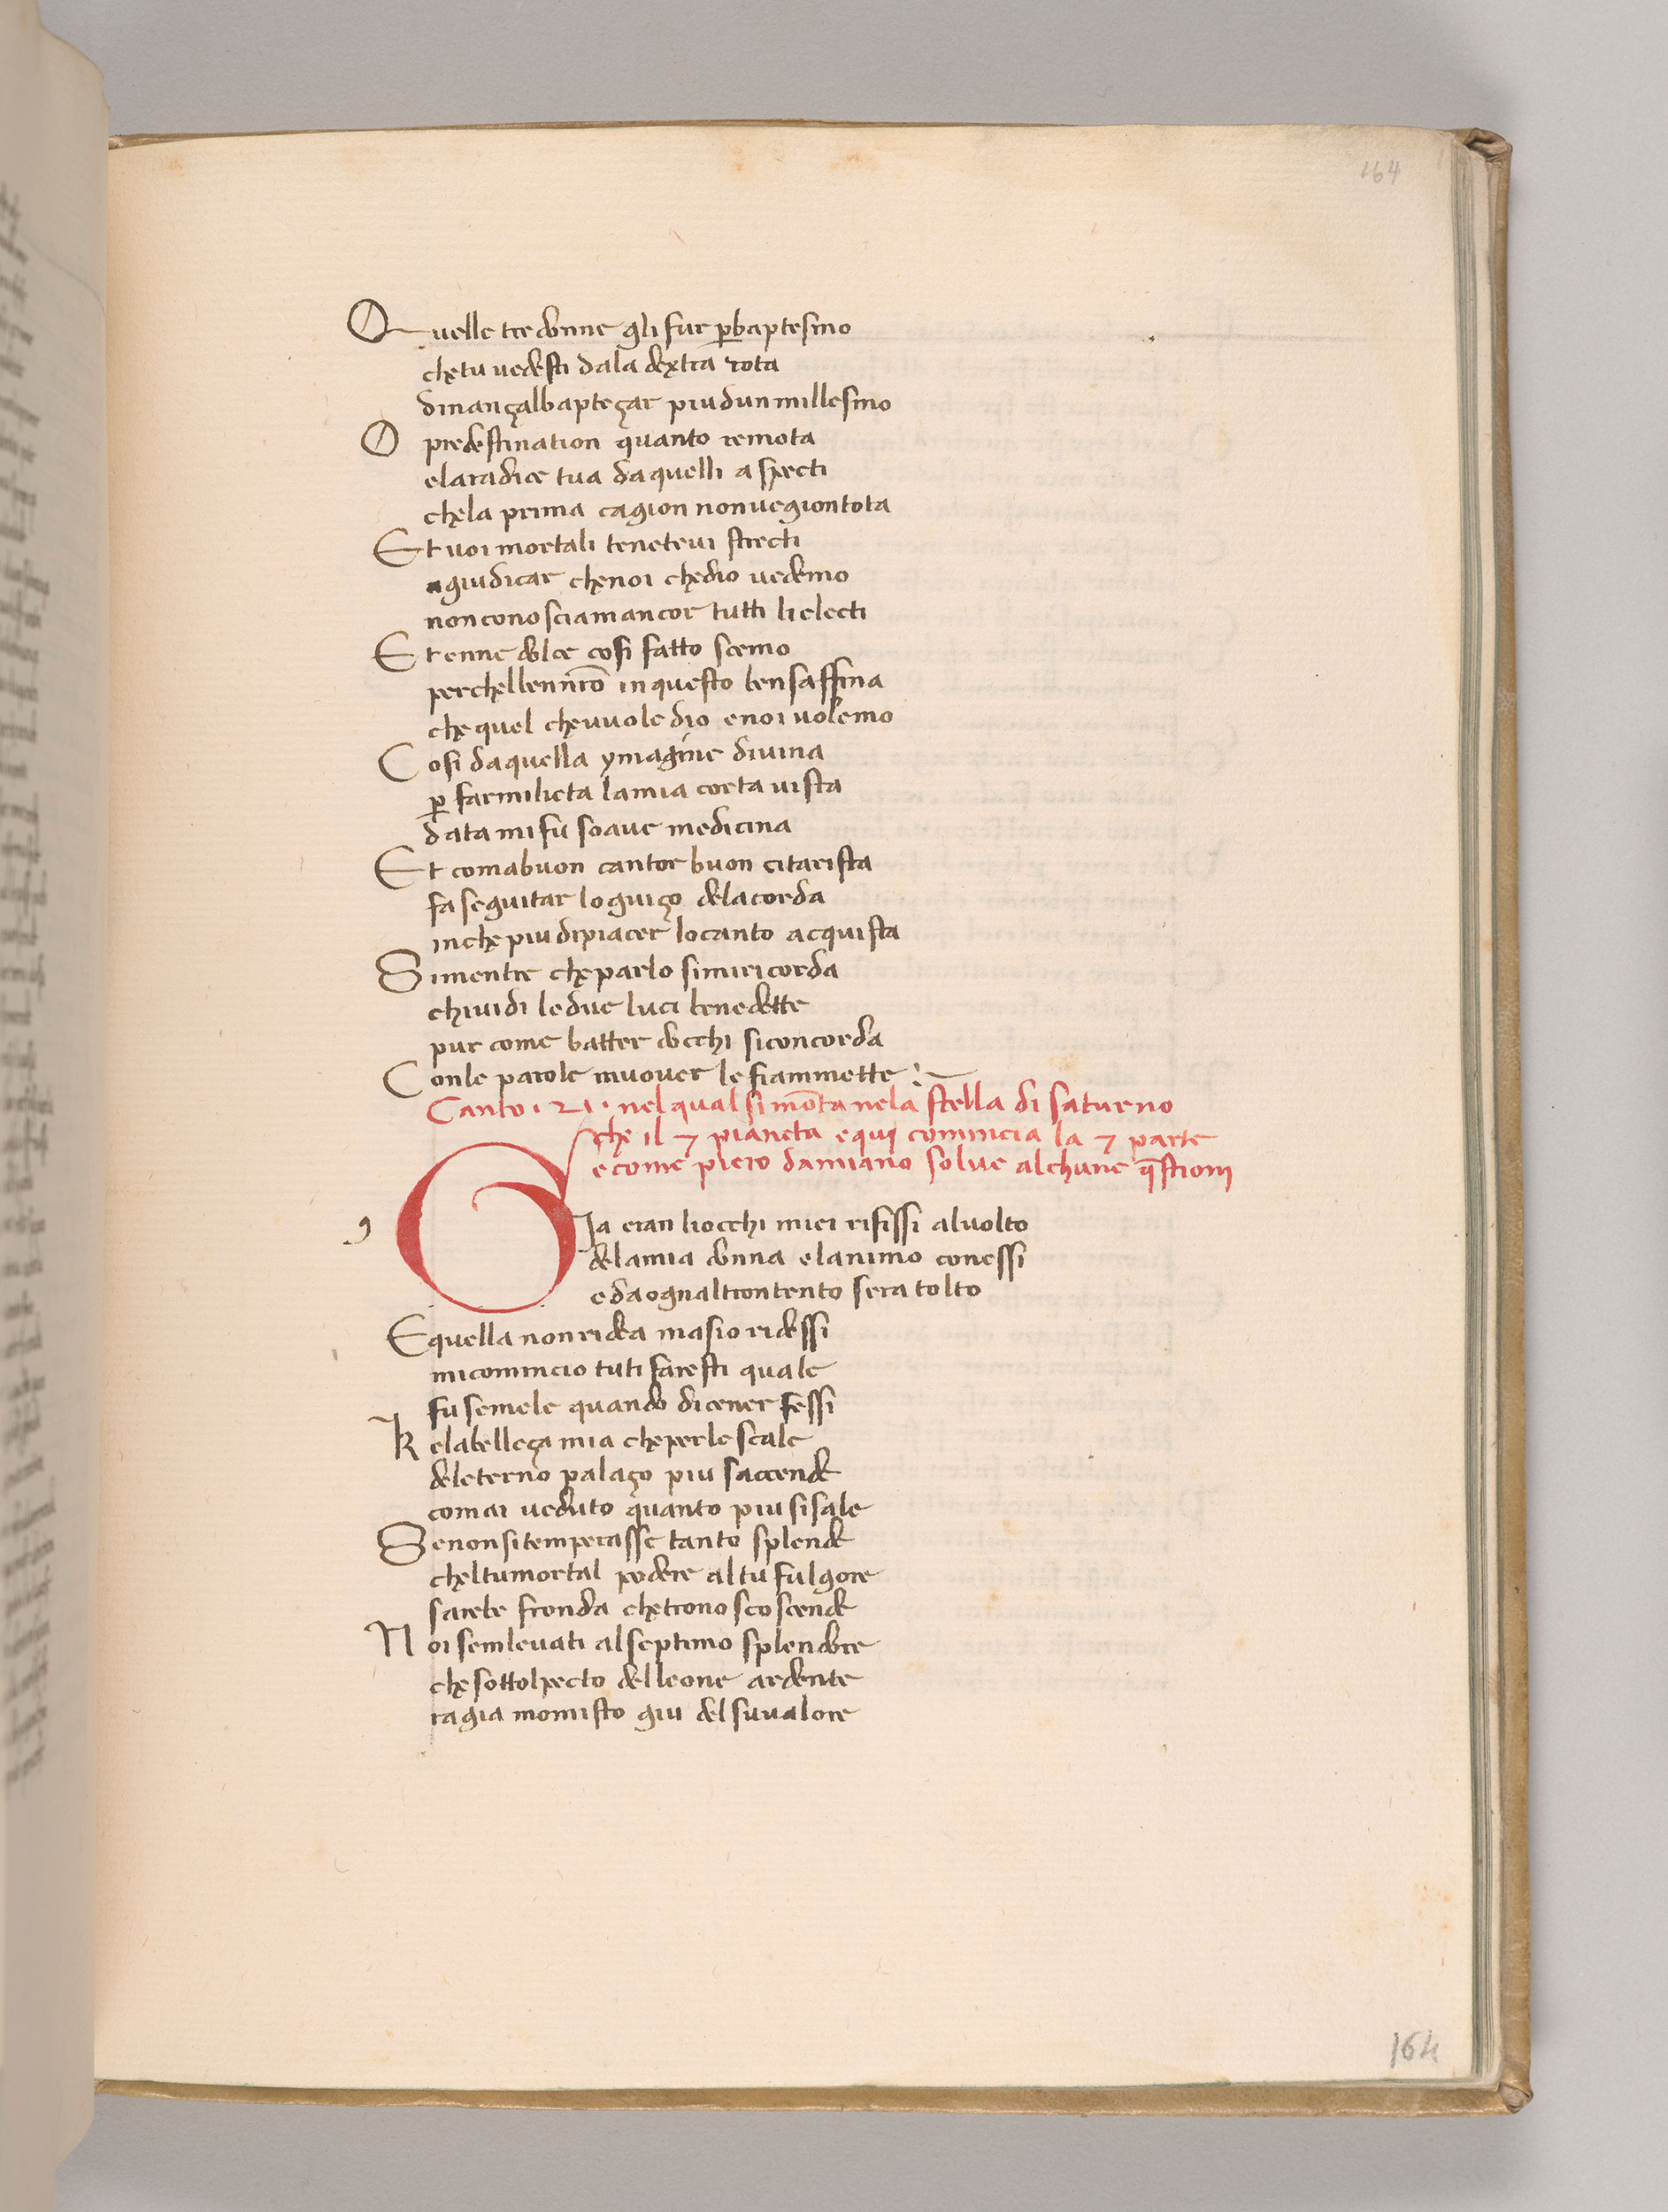 164
Quelle tre donne gli fur p̲baptesmo
che tu uedesti dala dextra rota
dinançalbapteçar piu dun millesmo
O predestination quanto remota
elaradice tua daquelli aspecti
chela prima cagion nonuegiontota
Et uoi mortali teneteui strecti
agiudicar chenoi chedio uedemo
nonconosciamancor tutti lielecti
Et enne dolce cosi fatto scemo
perchellennr̅o inquesto bensaffina
che quel cheuuole dio enoi uolemo
Cosi daquella ymagine diuina
p̲ farmilieta lamia corta uista
data mi fu soaue medicina
Et comabuon cantor buon citarista
fa seguitar loguiço delacorda
inche piu dipiacer locanto acquista
Si mentre cheparlo simiricorda
chiuidi ledue luci benedette
pur come batter docchi siconcorda
Conle parole muouer le fiammette :~
Canto . 21 . nelqual si mo̅ta nela stella di saturno
che il 7 pianeta e qui comincia la 7 parte
e come piero damiano solue alchune q̅stioni
g
Gia eran liocchi miei rifissi aluolto
delamia donna elanimo conessi
edaognaltrontento sera tolto
Equella nonridea masio ridessi
micomincio tuti faresti quale
fu semele quando dicener fessi
Kelabelleça mia cheperlescale
deleterno palaço piu saccende
comai ueduto quanto piu sisale
Senonsitemperasse tanto splende
cheltumortal podere altu fulgore
sarebe fronda chetrono scoscende
Noi semleuati alseptimo splendore
chesottolpecto delleone ardente
ragia momisto giu del suualore
164